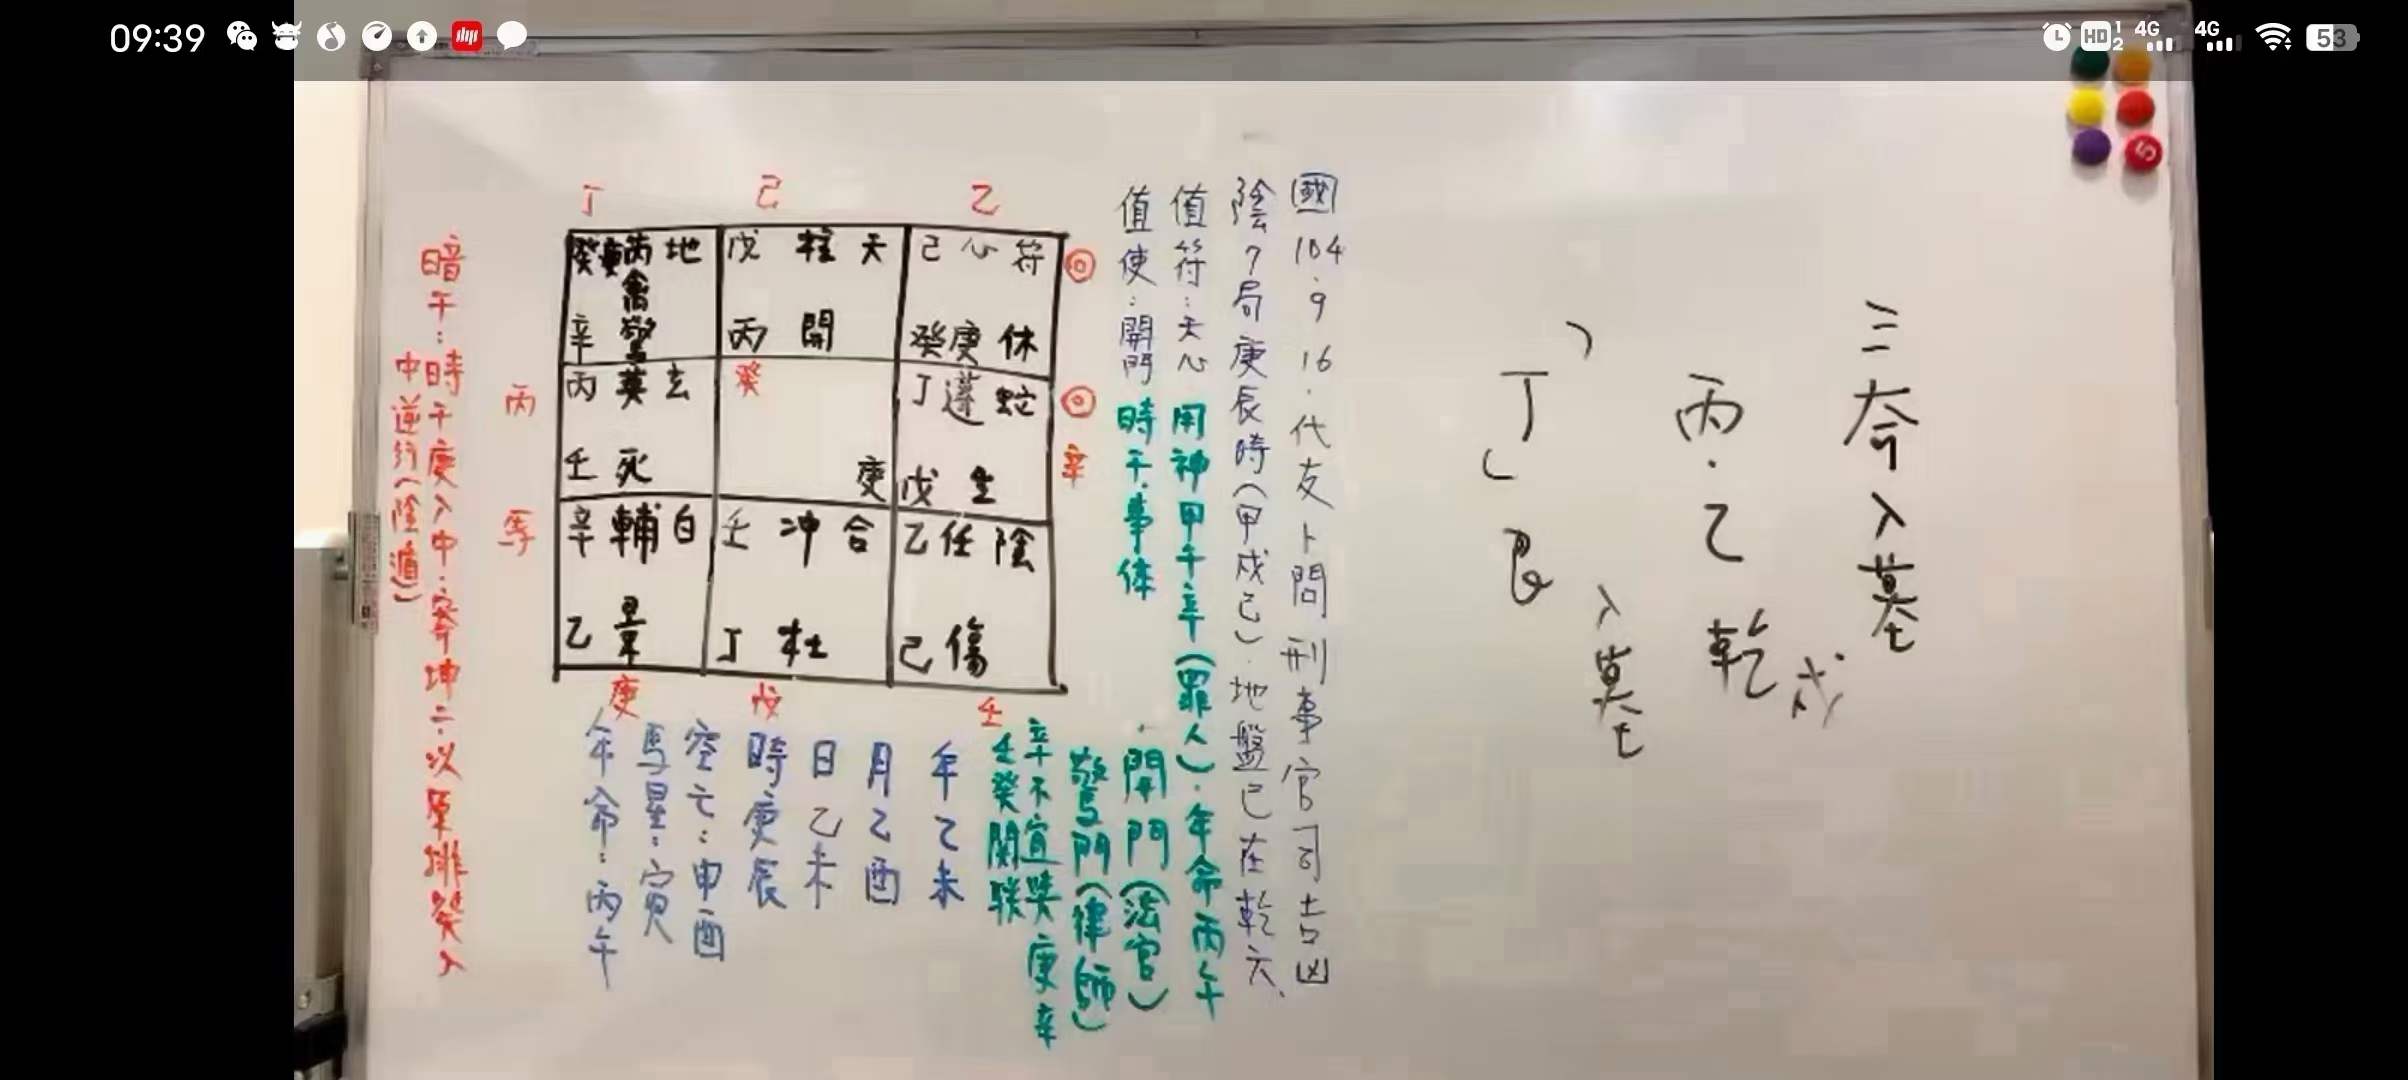 09:39
HD 1 2 4G 4G 53
5
三奇入墓
丙·乙乾戌
丁艮
入墓
國104.9.16.代友卜問刑事官司吉凶
陰7局庚辰時(甲戌己)·地盤己在乾六、
值符:天心 用神甲午辛(罪人)·年命丙午
值使:開門 時干:事体 ·開門(法官)
驚門(律師)
辛不宜獎庚辛
壬癸関联
丁 己 乙
癸 丙 地 戊 柱 天 己 心 符
禽
辛 驚 丙 開 癸庚 休
丙 英 玄 癸 丁 蓬 蛇
壬 死 庚 戊 生
丙 辛
辛 輔 白 壬 冲 合 乙 任 陰
馬
乙 景 丁 杜 己 傷
庚 戊 壬
年乙未
月乙酉
日乙未
時庚辰
空亡:申酉
馬星:寅
年命:丙午
暗干:時干庚入中·寄坤二·以原排癸入
中逆行(陰遁)